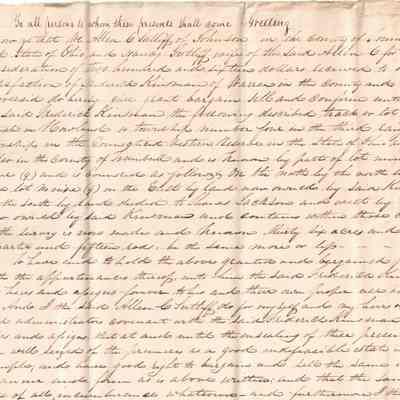 To all persons to whom these presents shall come Greeting
Know ye that We Allen C Sutliff of Johnson in the County of Trum
State of Ohio and Nancy Sutliff wife of the said Allen C for
sideration of two hundred and sixteen dollars received to
sfaction of Frederick Kinsman of Warren in the County and
foresaid do hereby give grant bargain sell and confirm unto
said Frederick Kinsman the following described tract or lot
in Howland is township number four in the third
ships in the Connecticut Western Reserve in the State of Ohio
also in the County of Trumbull and is known by part of lot num
(9) and is bounded as follows On the north by the north
lot No (9) on the East by land now owned by said Kin
the south by land deeded to Jacksons and west by
owned by said Kinsman and contains within those
the survey is now made and known thirty six acres and
quarter and fifteen rods be the same more or less
To have and to hold the above granted and bargained
the appurtenances thereof unto him the said Frederick Kin
heirs and assigns forever to his and their own proper use
And I the said Allen C Sutliff do for myself and my heirs
administrators covenant with the said Frederick Kinsman
and assigns that at and until the ensealing of these presen
well seized of the premises as a good indefeasible estate
simple and have good right to bargain and sell the same
manner and form as is above written and that the same
of all incumbrances whatsoever and furthermore I the